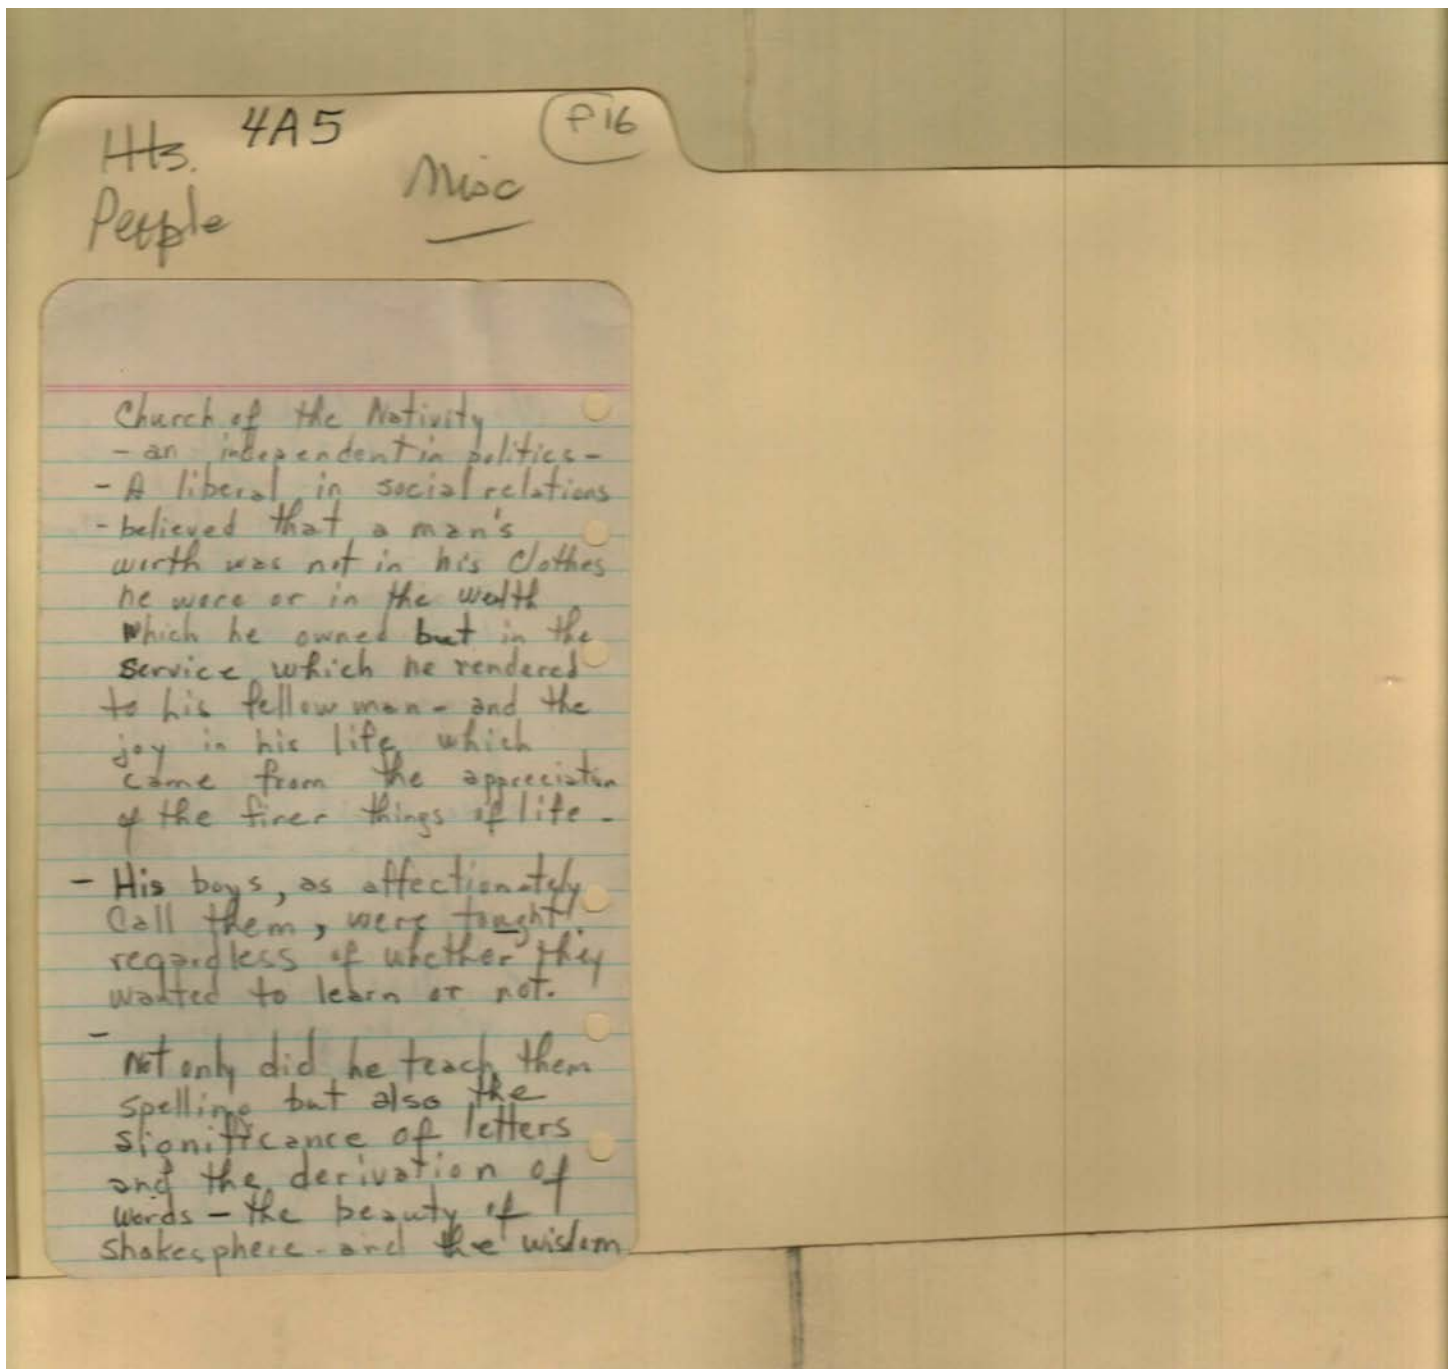 4A5
P16
Hts.
Misc
People
Church of the Nativity
- an independent in politics -
- A liberal in social relations
- believed that a man's
worth was not in his clothes
he wore or in the wealth
which he owned but in the
service which he rendered
to his fellow man - and the
joy in his life which
came from the appreciation
of the finer things of life -
- His boys, as affectionately
Call them, were taught
regardless of whether they
wanted to learn or not.
-
Not only did he teach them
spelling but also the
significance of letters
and the derivation of
words - the beauty of
Shakesphere - and the wisdom